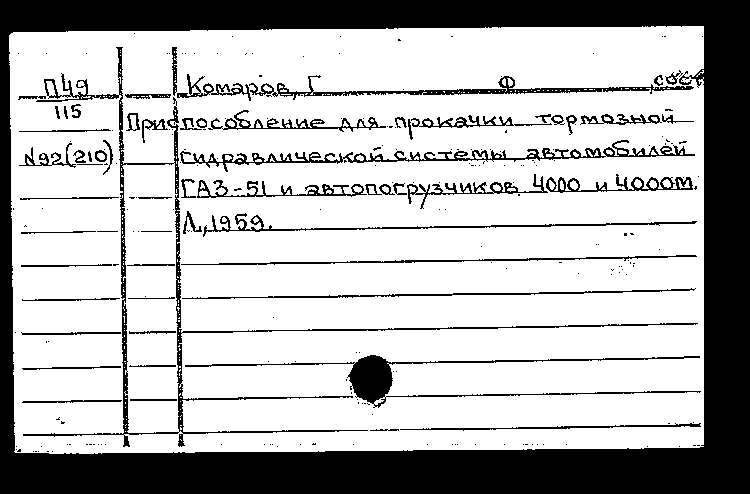 П49 Комаров, Г Ф , сост
115
Приспособление для прокачки тормозной
N92(210) гидравлической системы автомобилей
ГАЗ-51 и автопогрузчиков 4000 и 4000м.
Л., 1959.